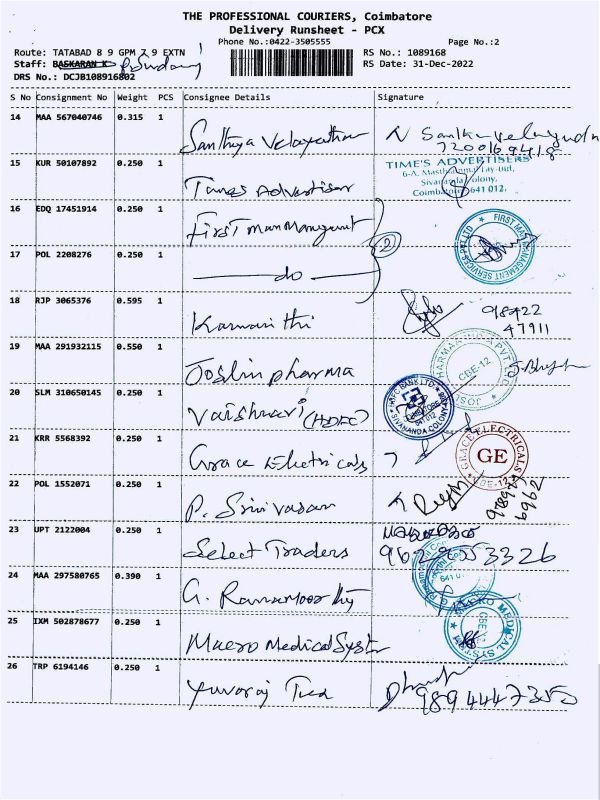 THE PROFESSIONAL COURIERS, Coimbatore
Delivery Runsheet - PCX
Phone No.:0422-3505555
Page No.:2
Route: TATABAD 8 9 GPM 7 9 EXTN
RS No.: 1089168
Staff: BASKARAN K
RS Date: 31-Dec-2022
DRS No.: DCJB108916802
S No Consignment No Weight PCS Consignee Details Signature
14 MAA 567040746 0.315 1
Santhya Velayathan
7200169418
15 KUR 50107892 0.250 1
TIME'S ADVERTISERS
Times Advertiser
Sivananda Colony,
Coimbatore 641 012.
16 EDQ 17451914 0.250 1
First Man Management
2
FIRST MAN MANAGEMENT SERVICES PVT LTD
17 POL 2208276 0.250 1
do
18 RJP 3065376 0.595 1
98422
47911
19 MAA 291932115 0.550 1
Joslin pharma
CBE-12
20 SLM 310650145 0.250 1
Vaishnavi (HDFC)
HDFC BANK LTD
SIVANANDA COLONY
21 KRR 5568392 0.250 1
Grace Electricals
GRACE ELECTRICALS
GE
CBE-12
22 POL 1552071 0.250 1
P. Srinivasan
23 UPT 2122004 0.250 1
Select Traders
9629553326
24 MAA 297580765 0.390 1
G. Ramamoorthy
25 IXM 502878677 0.250 1
Macro Medical System
MACRO MEDICAL SYSTEMS
CBE-12
26 TRP 6194146 0.250 1
Yuvaraj
9894447350